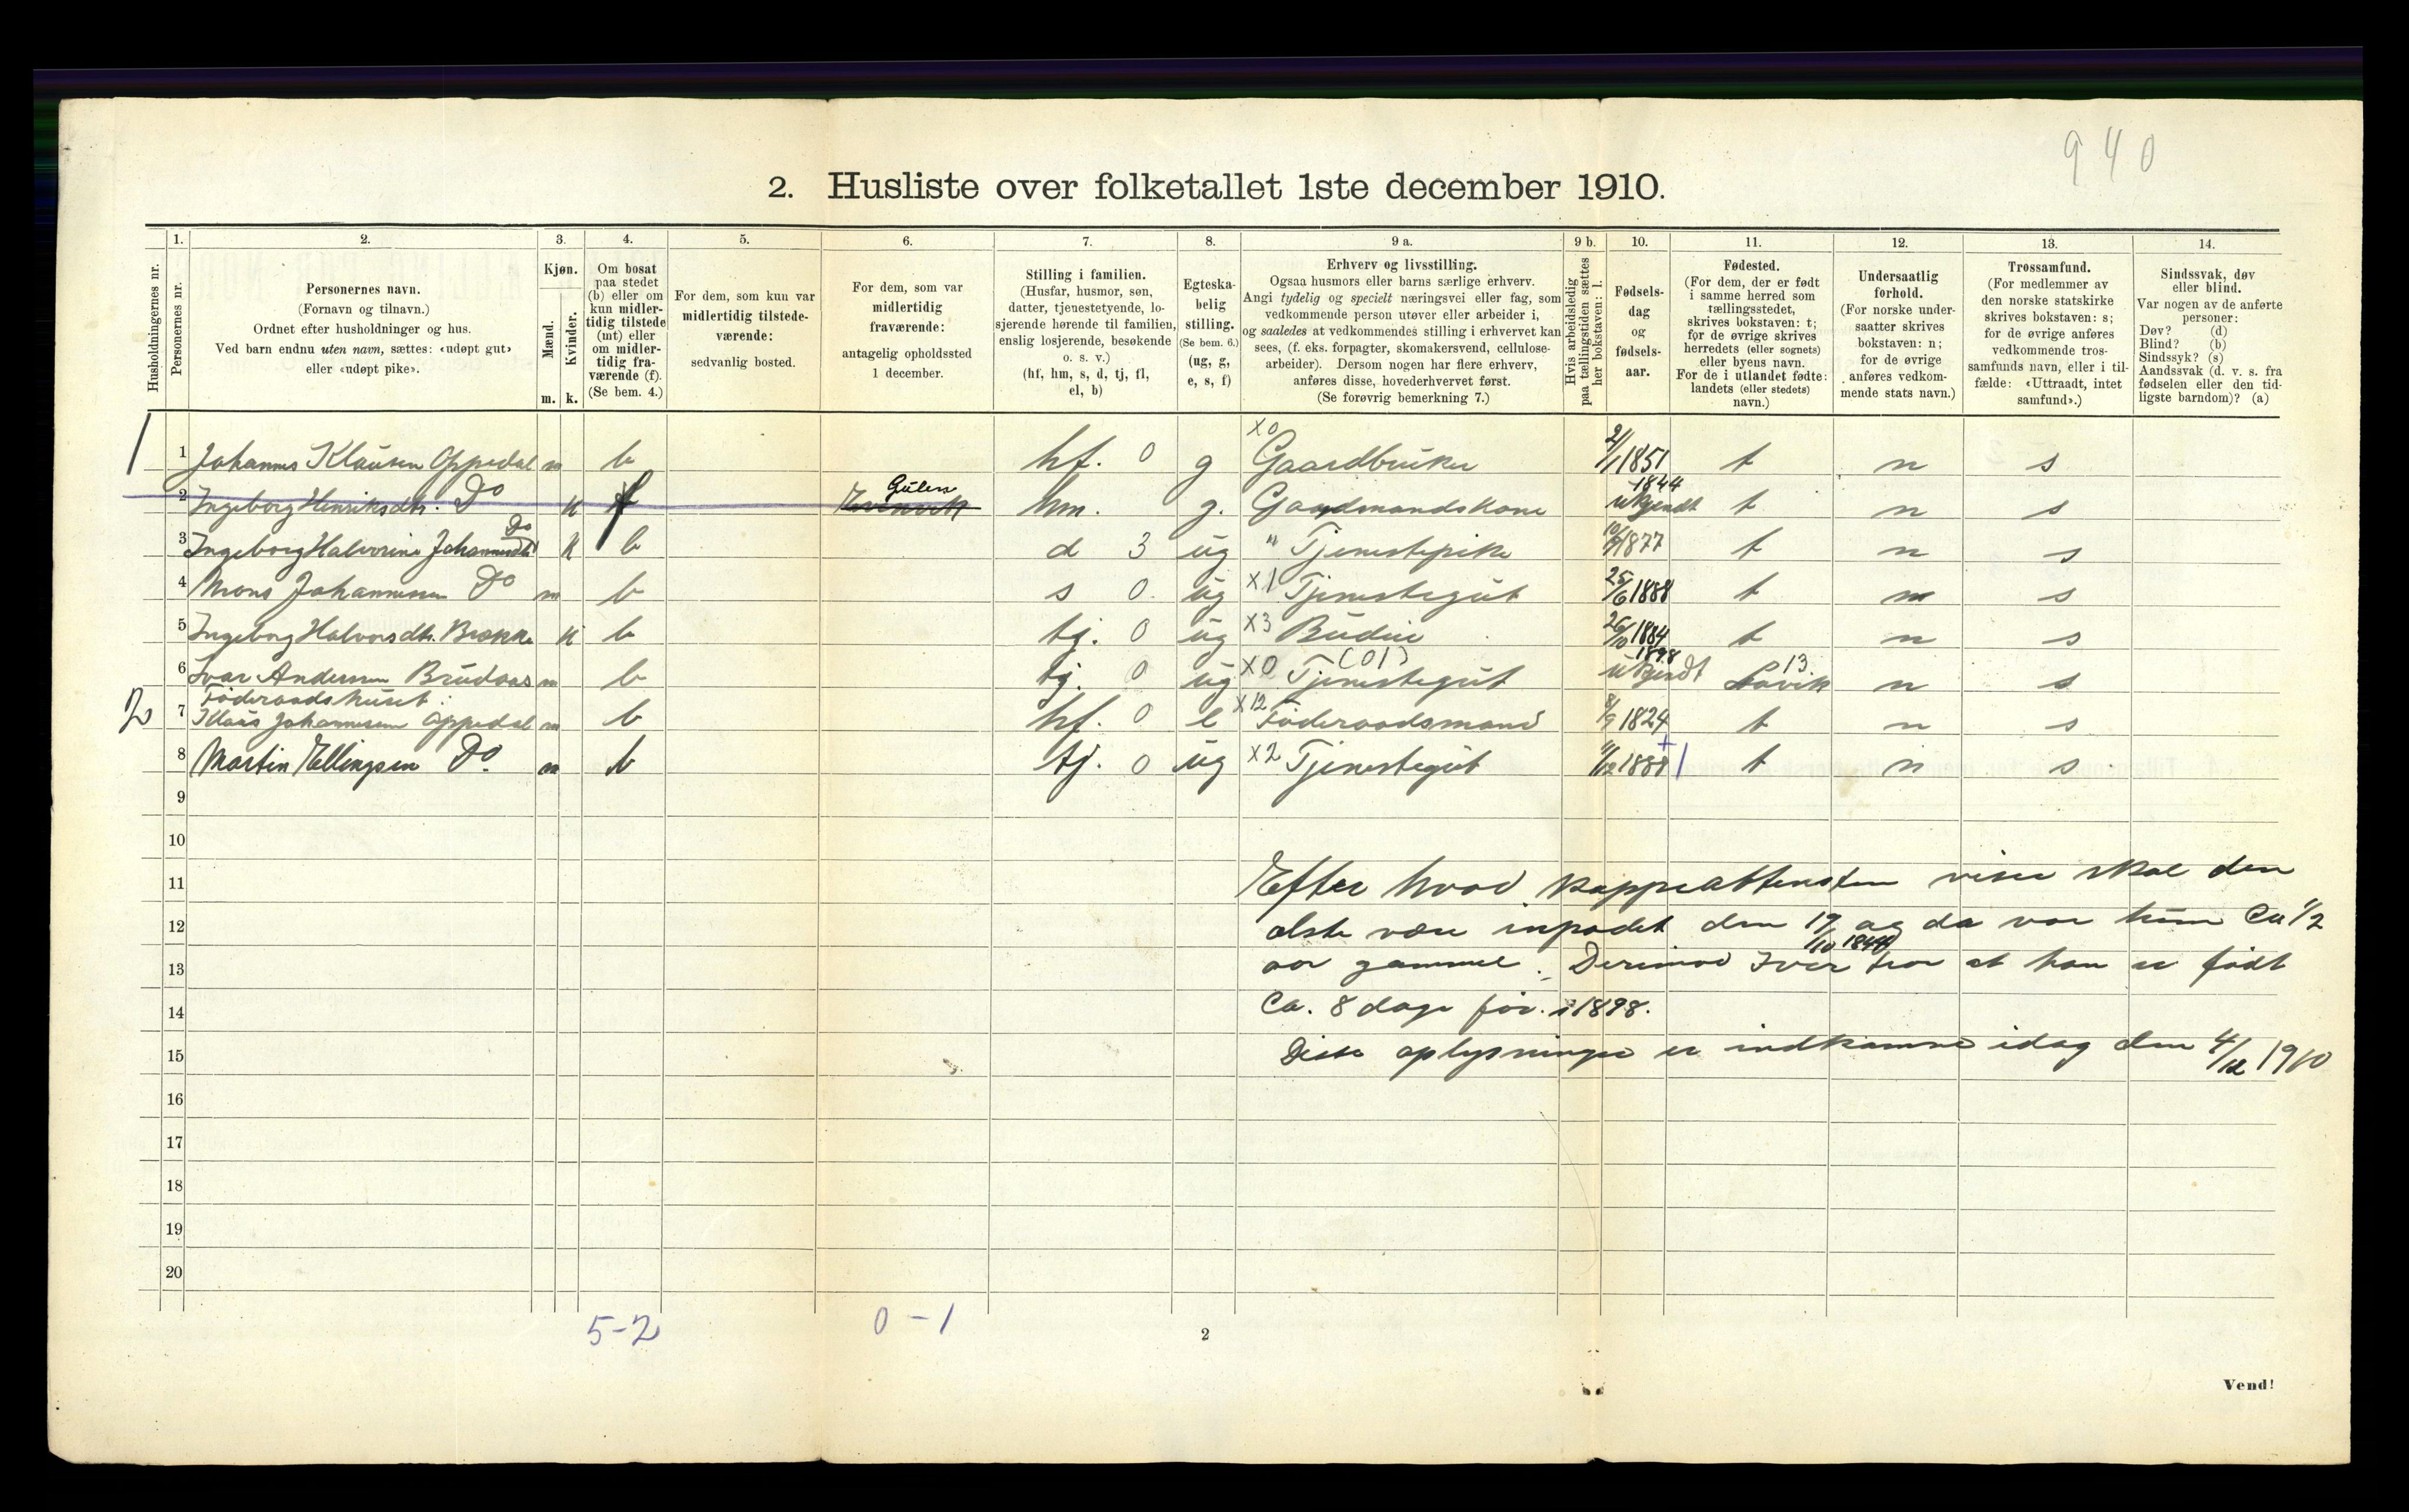 940
2. Husliste over folketallet 1ste december 1910.
Husholdningernes nr.
1. Personernes nr.
2. Personernes navn.
(Fornavn og tilnavn.)
Ordnet efter husholdninger og hus.
Ved barn endnu uten navn, sættes: «udøpt gut»
eller «udøpt pike».
3. Kjøn.
Mænd. Kvinder.
m. k.
4. Om bosat
paa stedet
(b) eller om
kun midler-
tidig tilstede
(mt) eller
om midler-
tidig fra-
værende (f).
(Se bem. 4.)
5. For dem, som kun var
midlertidig tilstede-
værende:
sedvanlig bosted.
6. For dem, som var
midlertidig
fraværende:
antagelig opholdssted
1 december.
7. Stilling i familien.
(Husfar, husmor, søn,
datter, tjenestetyende, lo-
sjerende hørende til familien,
enslig losjerende, besøkende
o. s. v.)
(hf, hm, s, d, tj, fl,
el, b)
8. Egteska-
belig
stilling.
(Se bem. 6.)
(ug, g,
e, s, f)
9 a. Erhverv og livsstilling.
Ogsaa husmors eller barns særlige erhverv.
Angi tydelig og specielt næringsvei eller fag, som
vedkommende person utøver eller arbeider i,
og saaledes at vedkommendes stilling i erhvervet kan
sees, (f. eks. forpagter, skomakersvend, cellulose-
arbeider). Dersom nogen har flere erhverv,
anføres disse, hovederhvervet først.
(Se forøvrig bemerkning 7.)
9 b. Hvis arbeidsledig
paa tællingstiden sættes
her bokstaven: l.
10. Fødsels-
dag
og
fødsels-
aar.
11. Fødested.
(For dem, der er født
i samme herred som
tællingsstedet,
skrives bokstaven: t;
for de øvrige skrives
herredets (eller sognets)
eller byens navn.
For de i utlandet fødte:
landets (eller stedets)
navn.)
12. Undersaatlig
forhold.
(For norske under-
saatter skrives
bokstaven: n;
for de øvrige
anføres vedkom-
mende stats navn.)
13. Trossamfund.
(For medlemmer av
den norske statskirke
skrives bokstaven: s;
for de øvrige anføres
vedkommende tros-
samfunds navn, eller i til-
fælde: «Uttraadt, intet
samfund».)
14. Sindssvak, døv
eller blind.
Var nogen av de anførte
personer:
Døv? (d)
Blind? (b)
Sindssyk? (s)
Aandssvak (d. v. s. fra
fødselen eller den tid-
ligste barndom)? (a)
1 1 Johannes Klausen Oppedal m b hf. 0 g X0 Gaardbruker 2/1 1851 t n s
2 Ingeborg Henriksdtr. Do k f Evenvik Gulen hm. g. Gaardmandskone ukjendt 1844 t n s
3 Ingeborg Halvorine Johannesdtr Do k b d 3 ug " Tjenestepike 1877 t n s
4 Mons Johannessen Do m b s 0 ug X1 Tjenestegut 25/6 1888 t n s
5 Ingeborg Halvorsdtr. Brekke k b tj. 0 ug X3 Budeie 26/10 1884 t n s
6 Ivar Andersen Brudaas m b tj. 0 ug X0 Tjenestegut (01) ukjendt 1898 Lavik 13 n s
Føderaadshuset.
2 7 Klaus Johannesen Oppedal m b hf. 0 e X12 Føderaadsmand 8/9 1824 t n s
8 Martin Ellingsen Do. m b tj. 0 ug X2 Tjenestegut 11/12 1888 t n s
9
10
11 Efter hvad koppeattesten viser skal den
12 ælste være inpodet den 19/10 1844 og da var hun Ca 1/2
13 aar gammel. Derimod Iver tror at han er født
14 Ca. 8 dage før. 1898.
15 Disse oplysninger er indkomne idag den 4/12 1910
16
17
18
19
20
5-2
0-1
2
Vend!